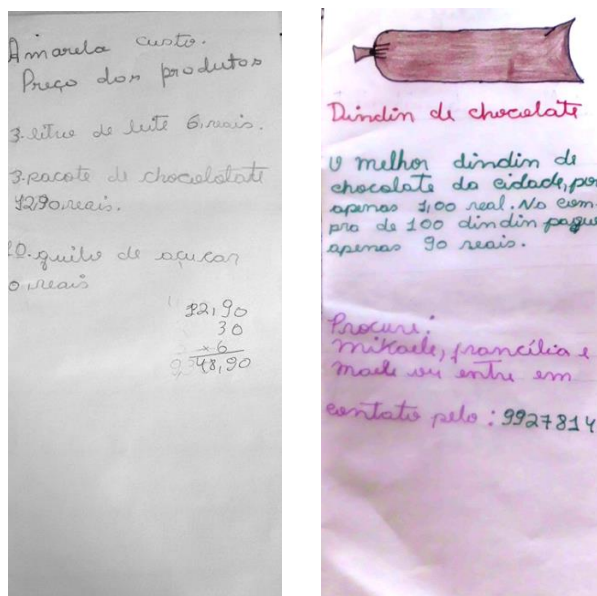 Amarela custo.
Preço dos produtos
3. litro de leite 6, reais.
3. pacote de chocolotate
12,90, reais.
10. quilo de açucar
0, reais
12,90
30
× 6
48,90
Dindin de chocolate
O melhor dindin de
chocolate da cidade, por
apenas 1,00 real. Na com-
pra de 100 dindin pague
apenas 90 reais.
Procure:
mikaele, francília e
maele ou entre em
contato pelo: 9927814